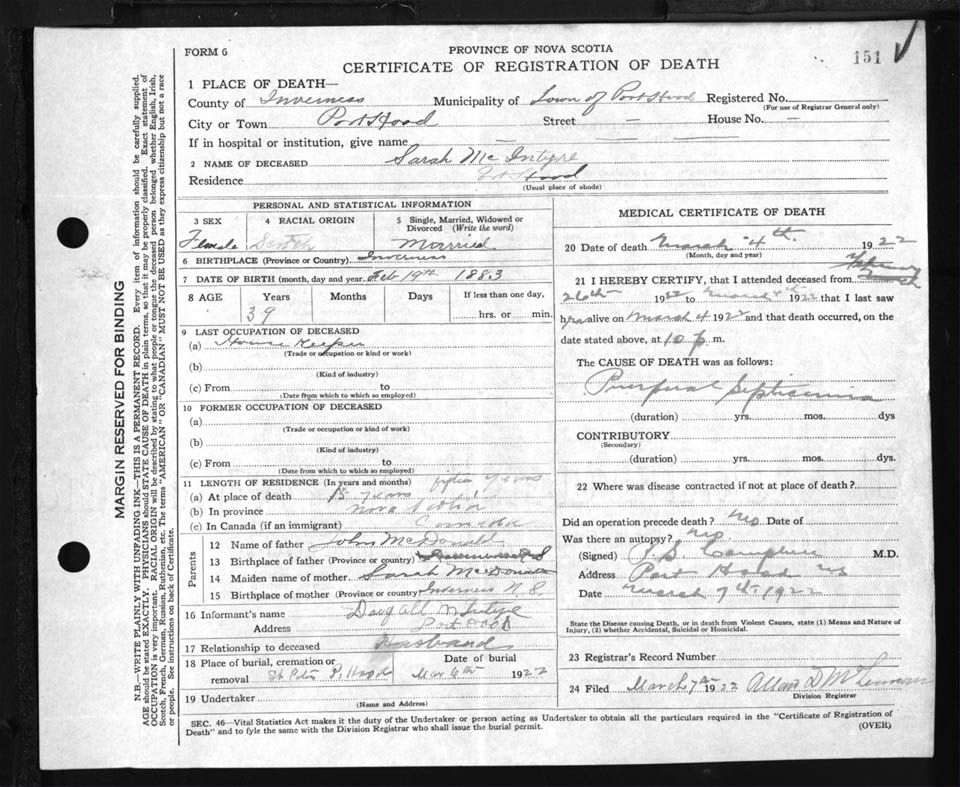 FORM 6
PROVINCE OF NOVA SCOTIA
CERTIFICATE OF REGISTRATION OF DEATH
151
MARGIN RESERVED FOR BINDING
N.B.—WRITE PLAINLY WITH UNFADING INK—THIS IS A PERMANENT RECORD. Every item of information should be carefully supplied.
AGE should be stated EXACTLY. PHYSICIANS should STATE CAUSE OF DEATH in plain terms, so that it may be properly classified. Exact statement of
OCCUPATION is very important. RACIAL ORIGIN will be described by stating to what people or tongue the deceased person belonged whether English, Irish,
Scotch, French, German, Russian, Ruthenian, etc. The terms "AMERICAN" OR "CANADIAN" MUST NOT BE USED as they express citizenship but not a race
or people. See instructions on back of Certificate.
1 PLACE OF DEATH—
County of Inverness Municipality of Town of Port Hood Registered No.
(For use of Registrar General only)
City or Town Port Hood Street — House No. —
If in hospital or institution, give name — — —
2 NAME OF DECEASED Sarah Mc Intyre
Residence Pt Hood
(Usual place of abode)
PERSONAL AND STATISTICAL INFORMATION
3 SEX Female
4 RACIAL ORIGIN Scotch
5 Single, Married, Widowed or Divorced (Write the word) Married
6 BIRTHPLACE (Province or Country) Inverness
7 DATE OF BIRTH (month, day and year) Feb 19th 1883
8 AGE Years Months Days If less than one day,
39 hrs. or min.
9 LAST OCCUPATION OF DECEASED
(a) House Keeper
(Trade or occupation or kind or work)
(b)
(Kind of industry)
(c) From to
(Date from which to which so employed)
10 FORMER OCCUPATION OF DECEASED
(a)
(Trade or occupation or kind of work)
(b)
(Kind of industry)
(c) From to
(Date from which to which so employed)
11 LENGTH OF RESIDENCE (In years and months) fifteen years
(a) At place of death 15 years
(b) In province Nova Scotia
(c) In Canada (if an immigrant) Canada
Parents
12 Name of father John McDonald
13 Birthplace of father (Province or country)
14 Maiden name of mother Sarah McDonald
15 Birthplace of mother (Province or country) Inverness N.S.
16 Informant's name Dougald McIntyre
Address Port Hood
17 Relationship to deceased Husband
18 Place of burial, cremation or removal St Peters P. Hood
Date of burial Mar 6th 1922
19 Undertaker
(Name and Address)
MEDICAL CERTIFICATE OF DEATH
20 Date of death March 4th 1922
(Month, day and year)
21 I HEREBY CERTIFY, that I attended deceased from February
26th 1922 to March 4th 1922 that I last saw
her alive on March 4 1922 and that death occurred, on the
date stated above, at 10 p. m.
The CAUSE OF DEATH was as follows:
Puerperal Septicemia
(duration) yrs. mos. dys
CONTRIBUTORY
(Secondary)
(duration) yrs. mos. dys.
22 Where was disease contracted if not at place of death?
Did an operation precede death? no Date of
Was there an autopsy? no
(Signed) M.D.
Address Port Hood NS
Date March 7th 1922
State the Disease causing Death, or in death from Violent Causes, state (1) Means and Nature of
Injury, (2) whether Accidental, Suicidal or Homicidal.
23 Registrar's Record Number
24 Filed March 7th 1922 Allan D McLennan
Division Registrar
SEC. 46—Vital Statistics Act makes it the duty of the Undertaker or person acting as Undertaker to obtain all the particulars required in the "Certificate of Registration of
Death" and to fyle the same with the Division Registrar who shall issue the burial permit.
(OVER)